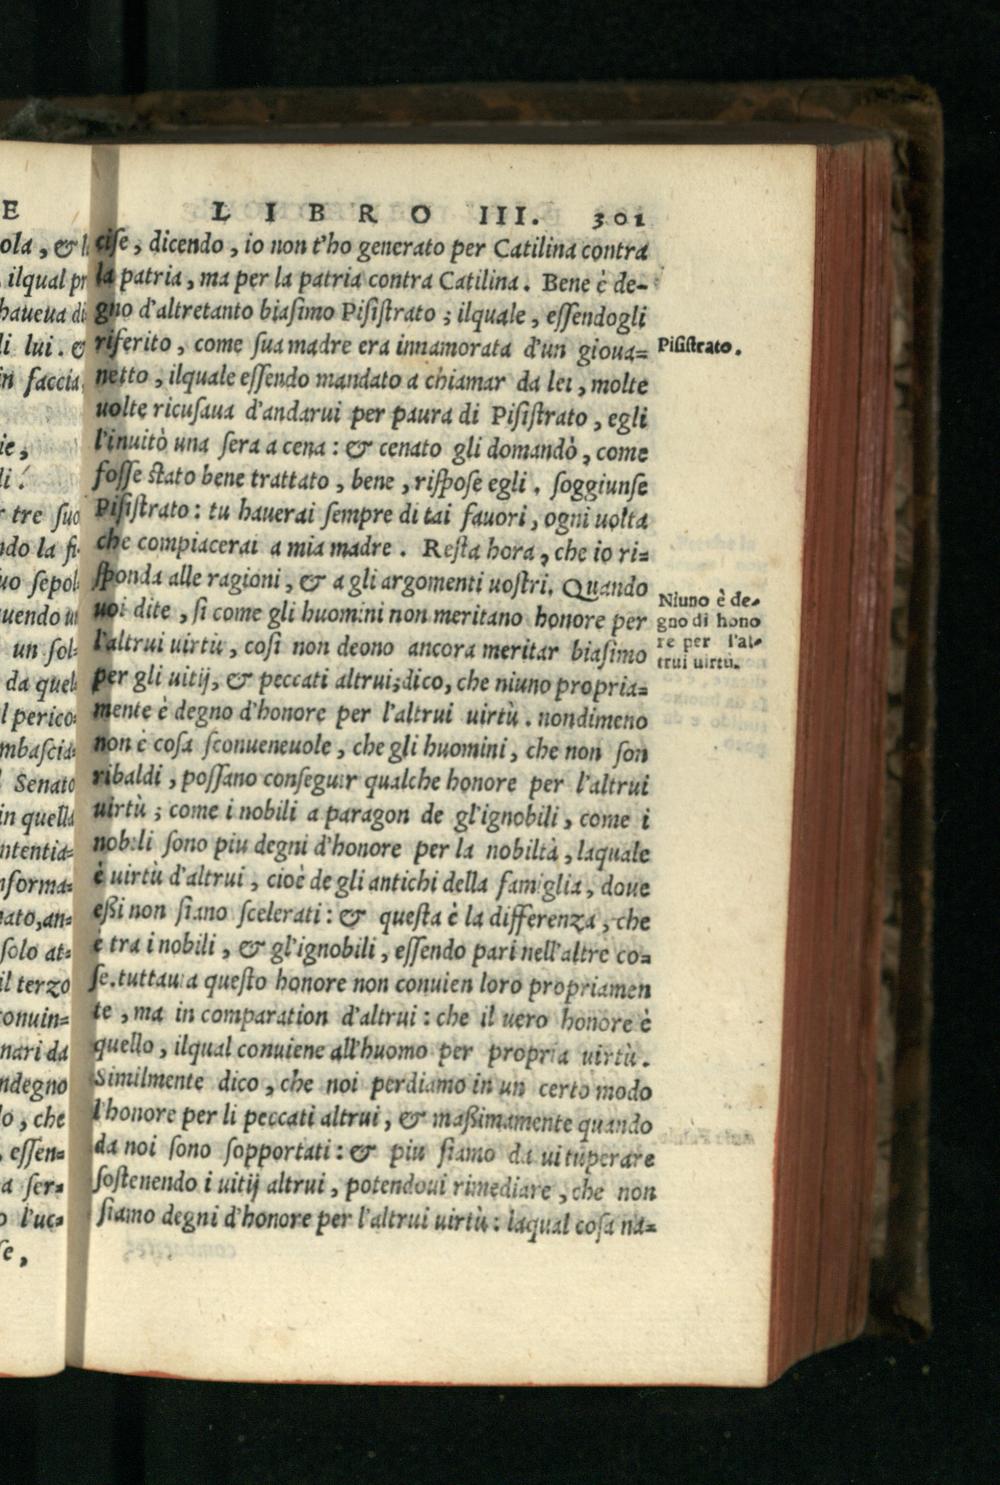 LIBRO III. 301
cise, dicendo, io non t'ho generato per Catilina contra
la patria, ma per la patria contra Catilina. Bene è de-
gno d'altretanto biasimo Pisistrato; ilquale, essendogli
riferito, come sua madre era innamorata d'un gioua=
netto, ilquale essendo mandato a chiamar da lei, molte
uolte ricusaua d'andarui per paura di Pisistrato, egli
l'inuitò una sera a cena: & cenato gli domandò, come
fosse stato bene trattato, bene, rispose egli. soggiunse
Pisistrato: tu hauerai sempre di tai fauori, ogni uolta
che compiacerai a mia madre. Resta hora, che io ri=
sponda alle ragioni, & a gli argomenti uostri. Quando
uoi dite, si come gli huomini non meritano honore per
l'altrui uirtù, così non deono ancora meritar biasimo
per gli uitij, & peccati altrui; dico, che niuno propria=
mente è degno d'honore per l'altrui uirtù. nondimeno
non è cosa sconueneuole, che gli huomini, che non son
ribaldi, possano conseguir qualche honore per l'altrui
uirtù; come i nobili a paragon de gl'ignobili, come i
nobili sono piu degni d'honore per la nobiltà, laquale
è uirtù d'altrui, cioè de gli antichi della famiglia, doue
eßi non siano scelerati: & questa è la differenza, che
è tra i nobili, & gl'ignobili, essendo pari nell'altre co=
se. tuttauia questo honore non conuien loro propriamen
te, ma in comparation d'altrui: che il uero honore è
quello, ilqual conuiene all'huomo per propria uirtù.
Similmente dico, che noi perdiamo in un certo modo
l'honore per li peccati altrui, & maßimamente quando
da noi sono sopportati: & piu siamo da uituperare
sostenendo i uitij altrui, potendoui rimediare, che non
siamo degni d'honore per l'altrui uirtù: laqual cosa na=
Pisistrato.
Niuno è de-
gno di hono
re per l'al-
trui uirtù.
E
ola, &
ilqual
haueua
li lui. &
in faccia
ie,
li
tre suo
ndo la
uo sepol
uendo
un sol=
da quel
l perico=
mbascia=
Senato
in quella
ntentia=
nforma=
nato, an=
solo at=
il terzo
conuin=
nari da
ndegno
lo, che
essen=
a ser=
o l'uc=
se,